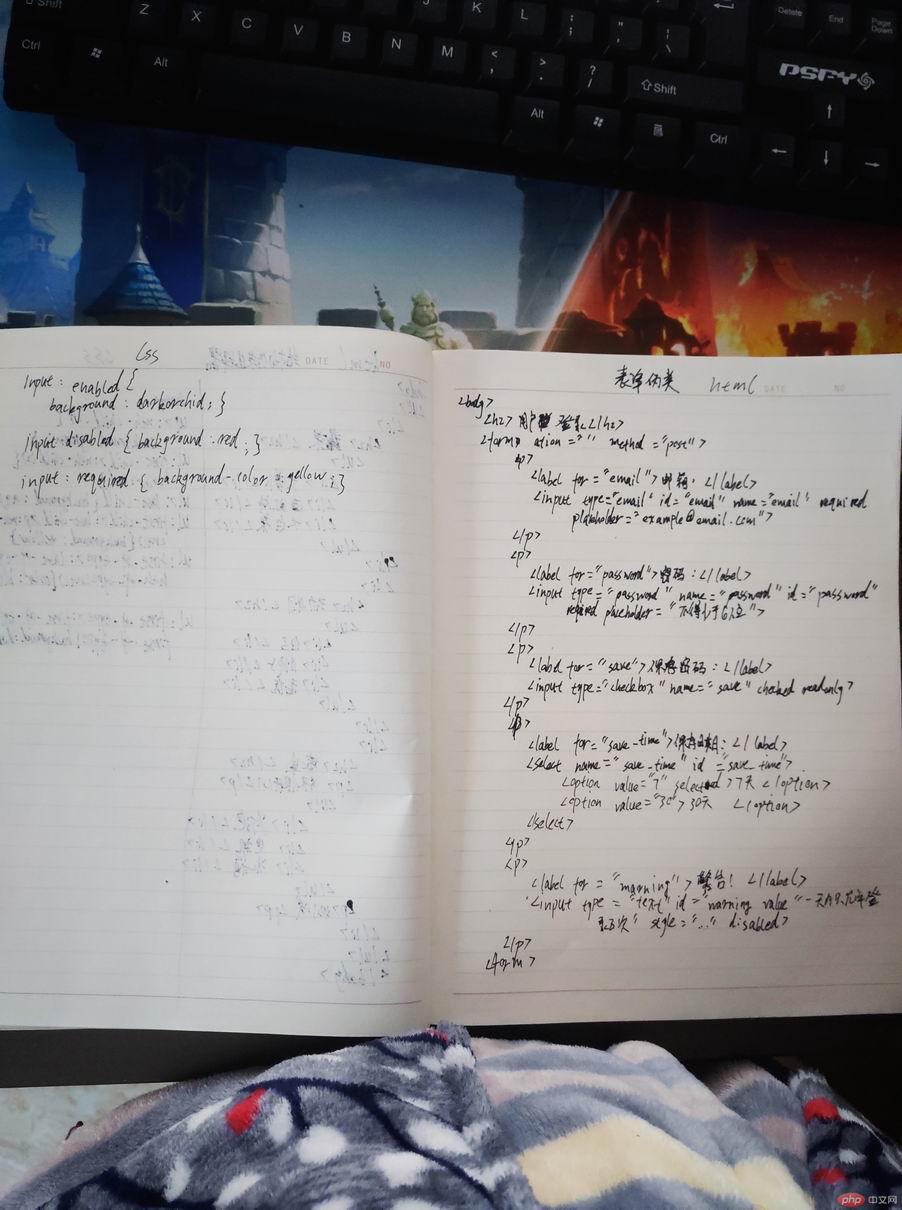 Shift
Z X C V B N M K L
Ctrl
Alt
Shift
Alt
Ctrl
Delete End Page Down
PSFY
Css
DATE NO
input : enabled {
background : darkorchid ; }
input : disabled { background : red ; }
input : required { background-color : yellow ; }
表单伪类 html DATE NO
<body>
<h2> 用户登录 </h2>
method = "post" >
<label for = "email" > 邮箱 : </label>
<input type="email" id="email" name="email" required
placeholder="example@email.com">
</p>
<p>
<label for="password"> 密码 : </label>
<input type="password" name="password" id="password"
required placeholder="不得少于6位">
</p>
<p>
<label for="save"> 保存密码 : </label>
<input type="checkbox" name="save" checked readonly>
</p>
<label for="save_time"> 保存日期 : </label>
<select name="save_time" id="save_time">
<option value="7" selected> 7天 </option>
<option value="30"> 30天 </option>
</select>
<p>
<label for = "marning" > 警告! </label>
<input type = "text" id="warning value "一天内只允许登
录3次" style="..." disabled>
</p>
<form>
php 中文网